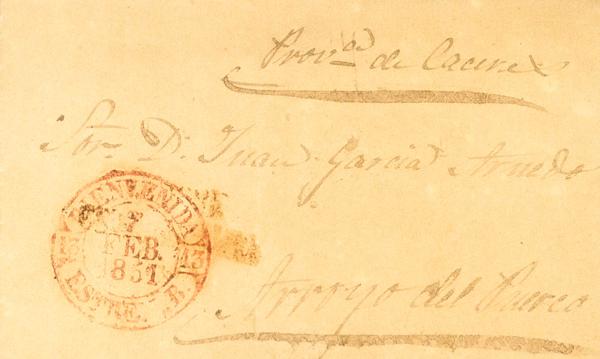 Provª de Caceres
Sor. D. Juan Garcia Arnedo
BIENVENIDA
7
FEB.
1851
13 13
ESTRE. B.
Arroyo del Puerco